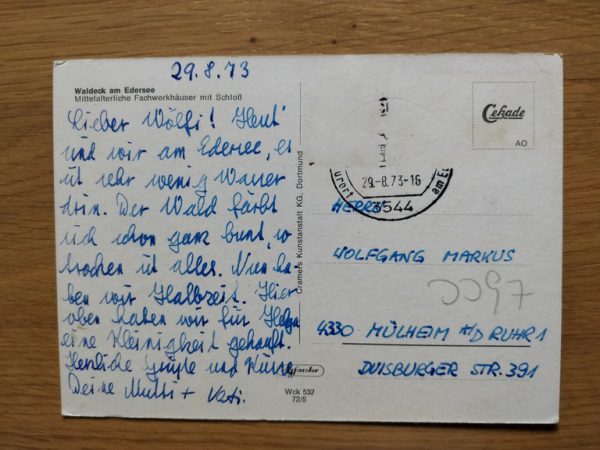 29.8.73
Waldeck am Edersee
Mittelalterliche Fachwerkhäuser mit Schloß
Lieber Wölfi! Heut'
sind wir am Edersee, es
ist sehr wenig Wasser
drin. Der Wald färbt
sich schon ganz bunt, so
trocken ist alles. Nun ha-
ben wir Halbzeit. Hier
oben haben wir für Helga
eine Kleinigkeit gekauft.
Herzliche Grüße und Küsse
Deine Mutti + Vati.
Cramers Kunstanstalt KG, Dortmund
Wck 532
72/5
Cekade
AO
29.-8.73-16
3544
HERRN
WOLFGANG MARKUS
0097
4330 MÜLHEIM A/D RUHR 1
DUISBURGER STR. 391